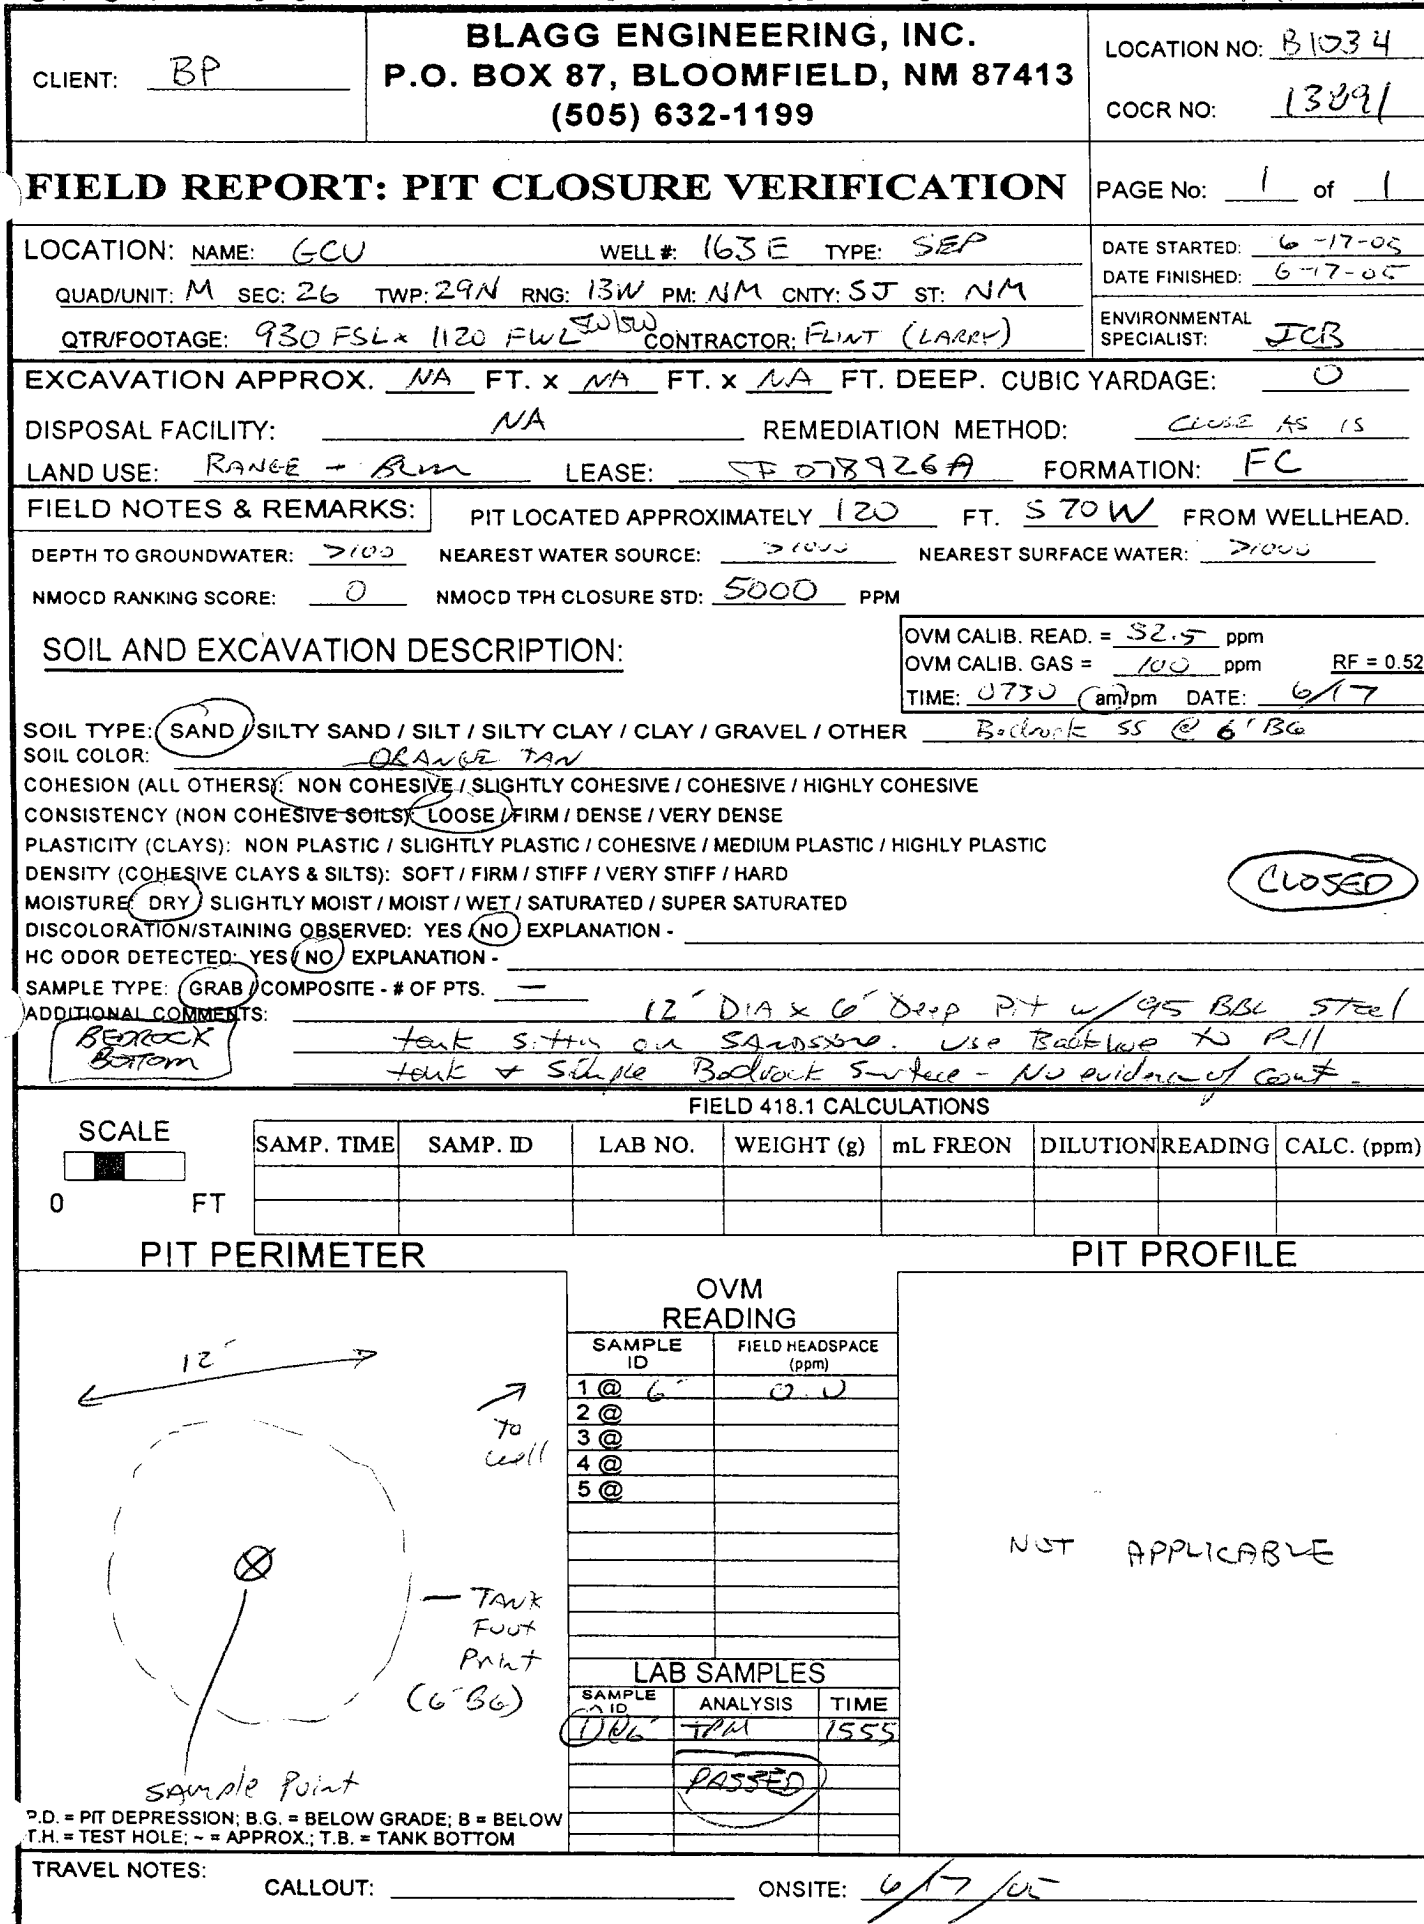 BLAGG ENGINEERING, INC.
P.O. BOX 87, BLOOMFIELD, NM 87413
(505) 632-1199
CLIENT: BP
LOCATION NO: B1034
COCR NO: 13891
FIELD REPORT: PIT CLOSURE VERIFICATION
PAGE No: 1 of 1
LOCATION: NAME: GCU WELL #: 163E TYPE: SEP
QUAD/UNIT: M SEC: 26 TWP: 29N RNG: 13W PM: NM CNTY: SJ ST: NM
QTR/FOOTAGE: 930 FSL x 1120 FWL SW/SW CONTRACTOR: FLINT (LARRY)
DATE STARTED: 6-17-05
DATE FINISHED: 6-17-05
ENVIRONMENTAL
SPECIALIST: JCB
EXCAVATION APPROX. NA FT. x NA FT. x NA FT. DEEP. CUBIC YARDAGE: 0
DISPOSAL FACILITY: NA REMEDIATION METHOD: CLOSE AS IS
LAND USE: RANGE - BLM LEASE: SF 078926A FORMATION: FC
FIELD NOTES & REMARKS: PIT LOCATED APPROXIMATELY 120 FT. S70W FROM WELLHEAD.
DEPTH TO GROUNDWATER: >100 NEAREST WATER SOURCE: >1000 NEAREST SURFACE WATER: >1000
NMOCD RANKING SCORE: 0 NMOCD TPH CLOSURE STD: 5000 PPM
SOIL AND EXCAVATION DESCRIPTION:
OVM CALIB. READ. = 52.5 ppm
OVM CALIB. GAS = 100 ppm RF = 0.52
TIME: 0730 am/pm DATE: 6/17
SOIL TYPE: SAND / SILTY SAND / SILT / SILTY CLAY / CLAY / GRAVEL / OTHER Bedrock SS @ 6' BG
SOIL COLOR: ORANGE TAN
COHESION (ALL OTHERS): NON COHESIVE / SLIGHTLY COHESIVE / COHESIVE / HIGHLY COHESIVE
CONSISTENCY (NON COHESIVE SOILS): LOOSE / FIRM / DENSE / VERY DENSE
PLASTICITY (CLAYS): NON PLASTIC / SLIGHTLY PLASTIC / COHESIVE / MEDIUM PLASTIC / HIGHLY PLASTIC
DENSITY (COHESIVE CLAYS & SILTS): SOFT / FIRM / STIFF / VERY STIFF / HARD
MOISTURE: DRY / SLIGHTLY MOIST / MOIST / WET / SATURATED / SUPER SATURATED
CLOSED
DISCOLORATION/STAINING OBSERVED: YES / NO EXPLANATION -
HC ODOR DETECTED: YES / NO EXPLANATION -
SAMPLE TYPE: GRAB / COMPOSITE - # OF PTS. —
ADDITIONAL COMMENTS: 12' DIA x 6' Deep Pit w/ 95 BBL Steel
tank sitting on SANDSTONE. Use Backhoe to Pull
tank & Sample Bedrock Surface - No evidence of cont.
BEDROCK
BOTTOM
FIELD 418.1 CALCULATIONS
SCALE
0 FT
SAMP. TIME SAMP. ID LAB NO. WEIGHT (g) mL FREON DILUTION READING CALC. (ppm)
PIT PERIMETER
12'
TO
well
TANK
Foot
Print
(6' BG)
SAmple Point
P.D. = PIT DEPRESSION; B.G. = BELOW GRADE; B = BELOW
T.H. = TEST HOLE; ~ = APPROX.; T.B. = TANK BOTTOM
OVM
READING
SAMPLE ID FIELD HEADSPACE (ppm)
1 @ 6' 0.0
2 @
3 @
4 @
5 @
LAB SAMPLES
SAMPLE ID ANALYSIS TIME
1@6' TPH 1555
PASSED
PIT PROFILE
NOT APPLICABLE
TRAVEL NOTES:
CALLOUT: ONSITE: 6/17/05